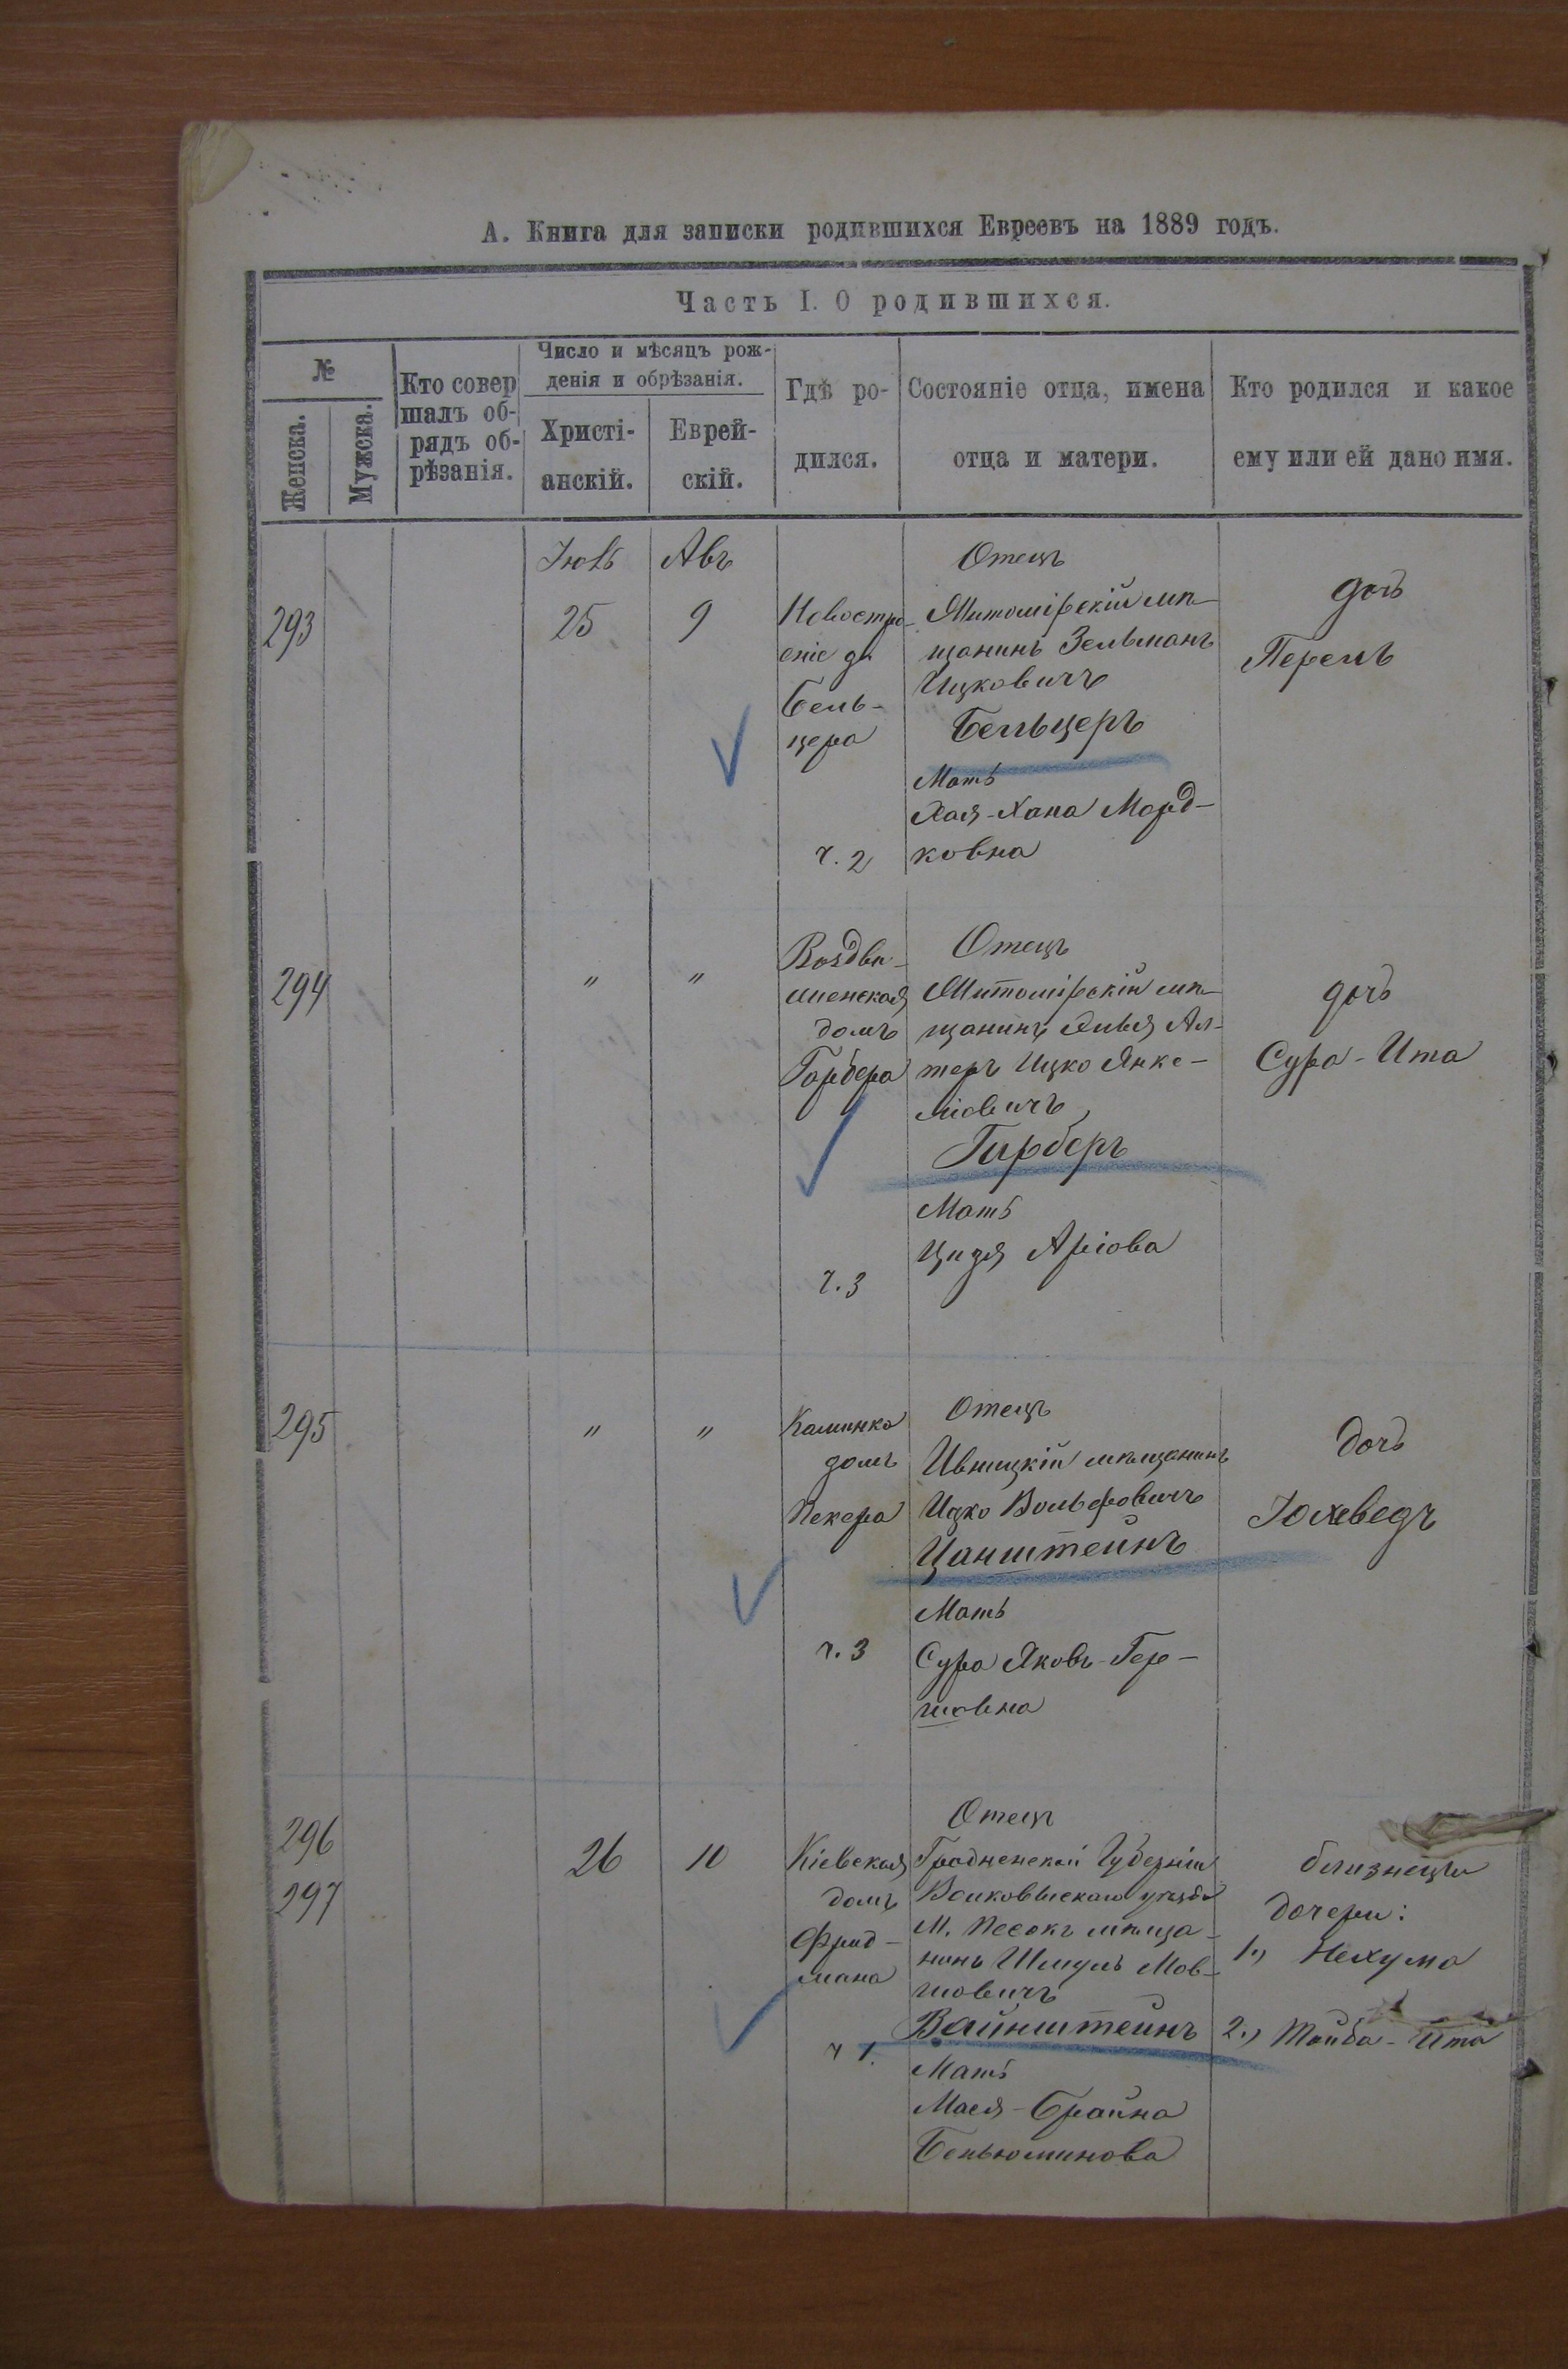 А. Книга для записки родившихся Евреевъ на 1889 годъ.
Часть I. О родившихся.
№
Женска.
Мужска.
Кто совер
шалъ об-
рядъ об-
рѣзанія.
Число и мѣсяцъ рож-
денія и обрѣзанія.
Христі-
анскій.
Еврей-
скій.
Гдѣ ро-
дился.
Состояніе отца, имена
отца и матери.
Кто родился и какое
ему или ей дано имя.
293
Іюль
25
Авъ
9
Новостро-
еніе д.
Бель-
цера
ч. 2
Отецъ
Житомірскій мѣ-
щанинъ Зельманъ
Ицковичъ
Бельцеръ
Мать
Хая-Хана Морд-
ковна
дочь
Перель
294
"
"
Воздви-
женская
домъ
Гарбера
ч. 3
Отецъ
Житомірскій мѣ-
щанинъ Ал-
теръ Ицко Янке-
ліовичъ
Гарберъ
Мать
Ципя Аріова
дочь
Сура-Ита
295
"
"
Каминка
домъ
Пекера
ч. 3
Отецъ
Ивницкій мѣщанинъ
Ицко Вольфовичъ
Цанштейнъ
Мать
Сура Яковъ-Гер-
шовна
дочь
Іохеведъ
296
297
26
10
Кіевская
домъ
Фрид-
мана
ч 1.
Отецъ
Гродненской Губерніи
Волковыскаго уѣзда
М. Песокъ мѣща-
нинъ Шмуль Мов-
шовичъ
Вайнштейнъ
Мать
Мася-Брайна
Беньюминова
близнецы
дочери:
1., Нехума
2., Тойба-Ита